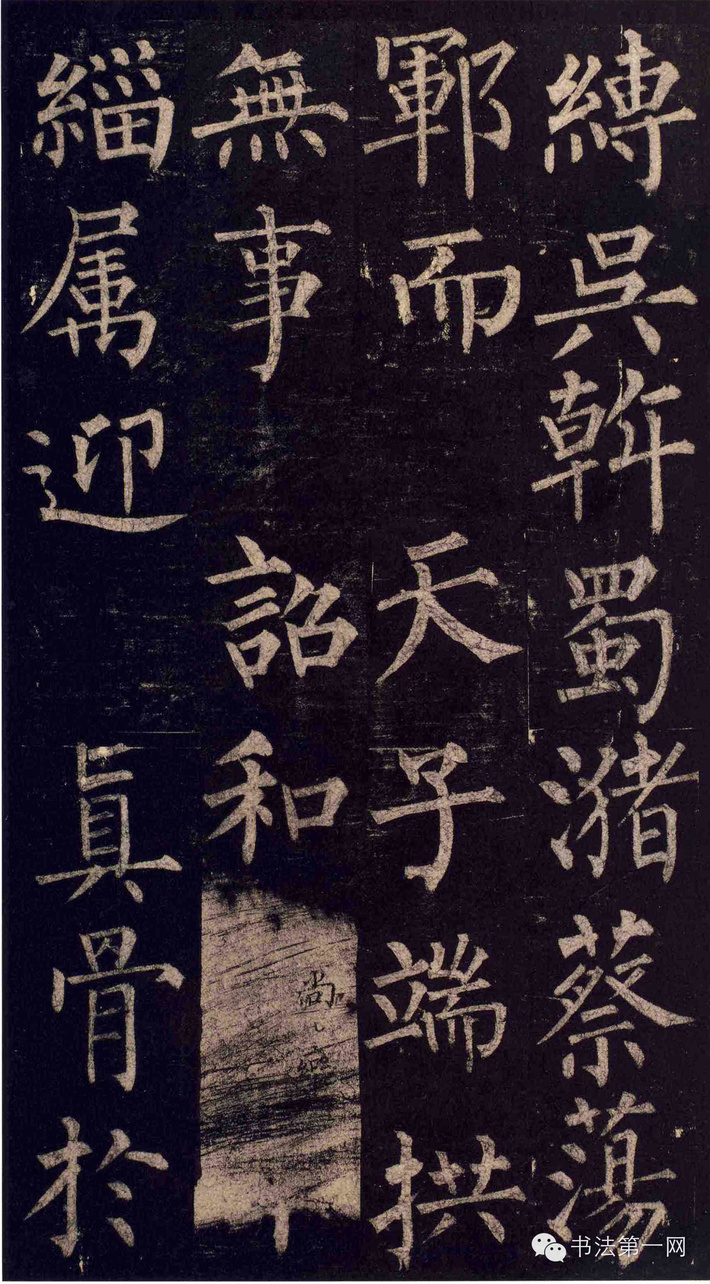 縛吳斡蜀潴蔡蕩
鄆而天子端拱
無事詔和尚
緇属迎眞骨於
书法第一网